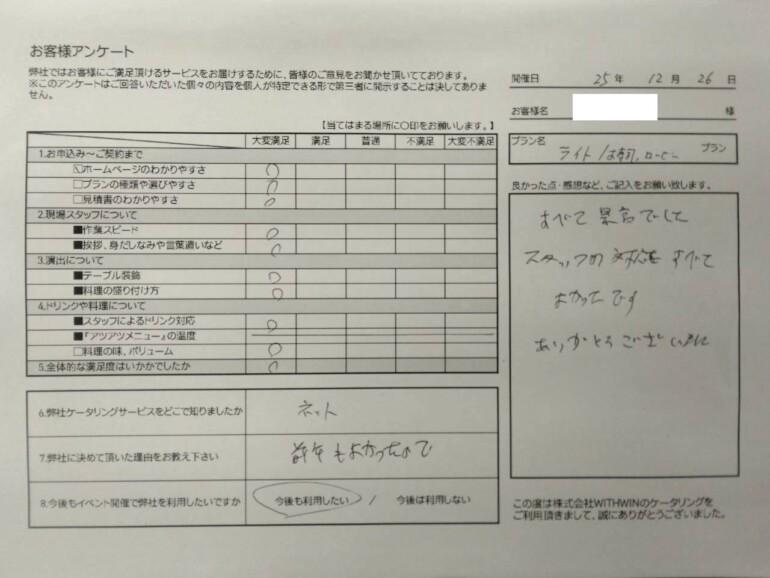 お客様アンケート
弊社ではお客様にご満足頂けるサービスをお届けするために、皆様のご意見をお聞かせ頂いております。
※このアンケートはご回答いただいた個々の内容を個人が特定できる形で第三者に開示することは決してありま
せん。
【当てはまる場所に○印をお願いします。】
大変満足 満足 普通 不満足 大変不満足
1.お申込み～ご契約まで
□ホームページのわかりやすさ
□プランの種類や選びやすさ
□見積書のわかりやすさ
2.現場スタッフについて
■作業スピード
■挨拶、身だしなみや言葉遣いなど
3.演出について
■テーブル装飾
■料理の盛り付け方
4.ドリンクや料理について
■スタッフによるドリンク対応
■『アツアツメニュー』の温度
□料理の味、ボリューム
5.全体的な満足度はいかがでしたか
6.弊社ケータリングサービスをどこで知りましたか ネット
7.弊社に決めて頂いた理由をお教え下さい 昨年もよかったので
8.今後もイベント開催で弊社を利用したいですか 今後も利用したい / 今後は利用しない
開催日 25年 12月 26日
お客様名 様
プラン名
ライト プラン
良かった点・感想など、ご記入をお願い致します。
すべて最高でした
スタッフの対応もすべて
よかったです
ありがとうございました
この度は株式会社WITHWINのケータリングを
ご利用頂きまして、誠にありがとうございました。